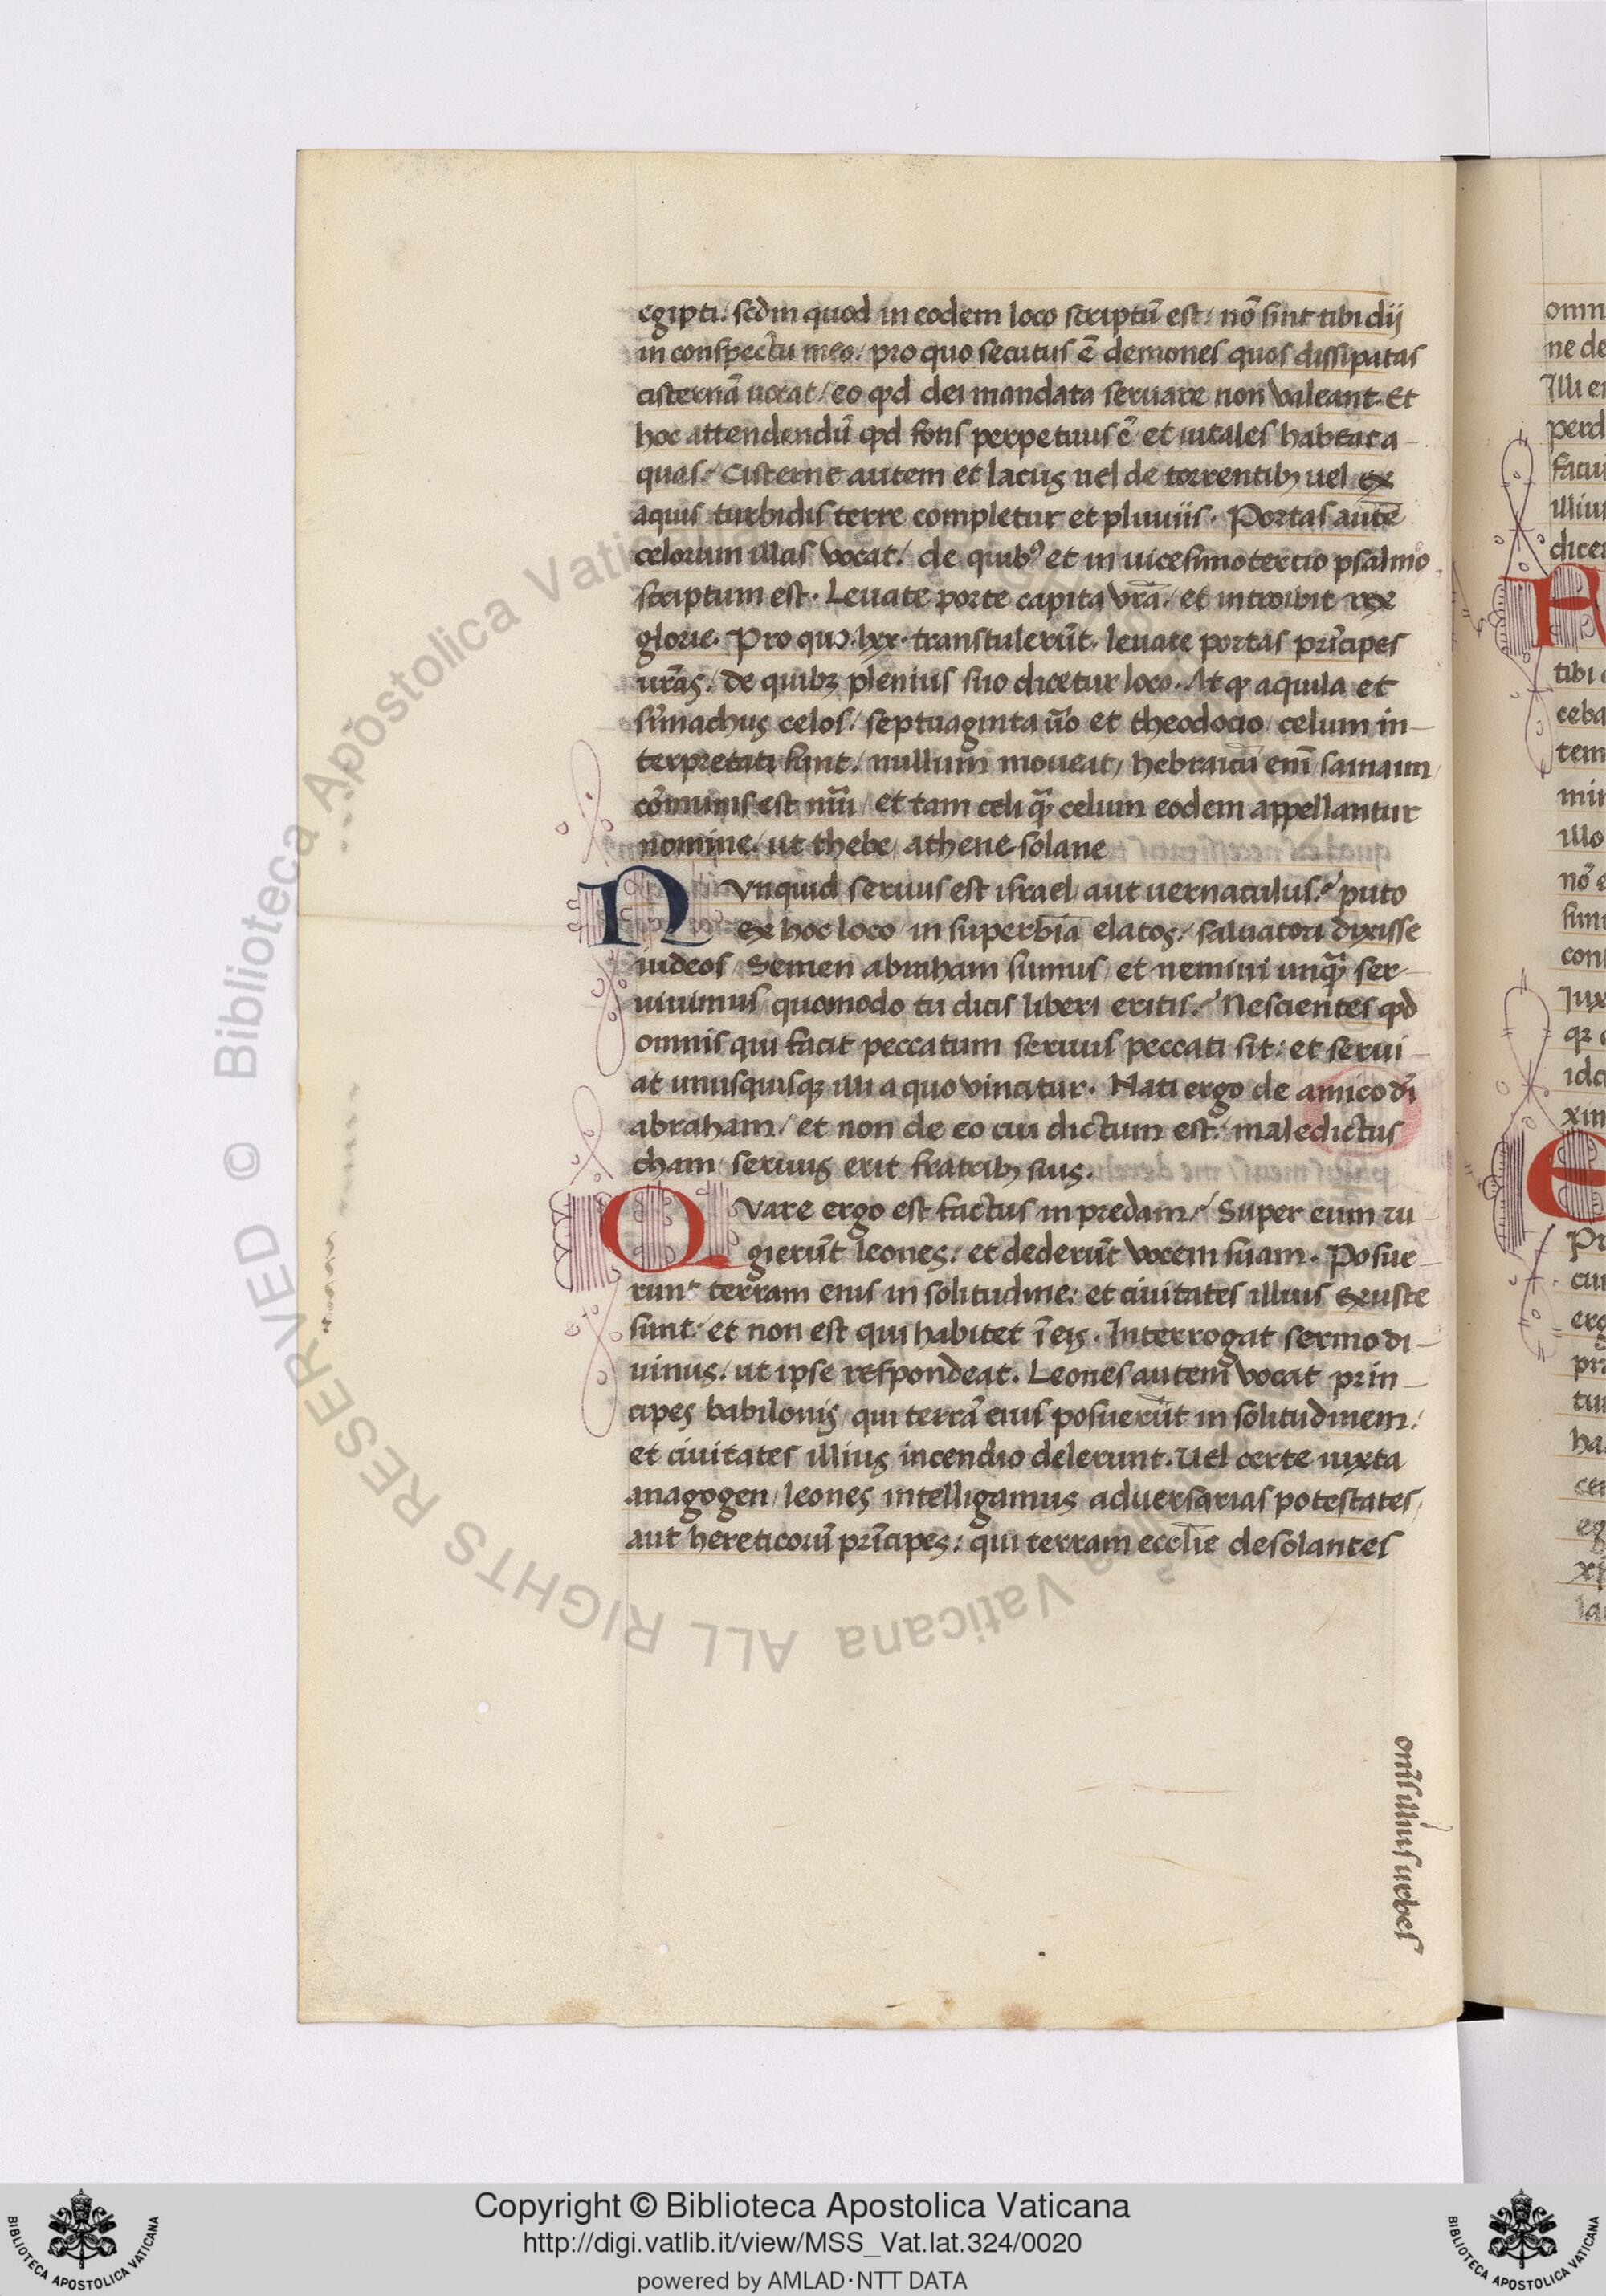 egipti / scdm quod in eodem loco scriptū est / nō sint tibi dij
in conspectu meo / pro quo secutus ē demones quos dissipatas
cisternā uocat / eo qđ dei mandata seruare non valeant. Et
hoc attendendū qđ fons perpetuus ē et uitales habeat a-
quas / Cisterne autem et lacus uel de torrentibꝫ uel ex
aquis turbidis terre completur et pluuiis. Portas autē
celorum illas vocat / de quibꝰ et in uicesimotercio psalmo
scriptum est. Leuate porte capita vrā / et introibit rex
glorie. Pro quo .lxx. transtulerūt. leuate portas prīcipes
urās / de quibꝫ plenius suo dicetur loco. At qđ aquila et
sīmachus celos / septuaginta ūo et theodocio celum in-
terpretati sunt / nullum moueat / hebraicū enī samaim
cōmunis est nūi / et tam celi quā celum eodem appellantur
nomine / ut thebe athene solane
NVnquid seruus est israel aut uernaculus? puto
ex hoc loco in superbia elatos / saluatori dixisse
iudeos / Semen abraham sumus / et nemini unquā ser-
uiuimus / quomodo tu dicis liberi eritis? Nescientes qđ
omnis qui facit peccatum seruus peccati sit: et serui-
at unusquisqꝫ illi a quo vincitur. Nati ergo de amico dī
abraham / et non de eo cui dictum est / maledictus
cham / seruus erit fratribꝫ suis.
QVare ergo est factus in predam? Super eum ru-
gierūt leones: et dederūt vocem suam. Posue-
runt terram eius in solitudine: et ciuitates illius exuste
sunt: et non est qui habitet ī eis. Interrogat sermo di-
uinus / ut ipse respondeat. Leones autem vocat prin-
cipes babilonis / qui terrā eius posuerūt in solitudinem /
et ciuitates illius incendio delerunt. Uel certe iuxta
anagogen / leones intelligamus aduersarias potestates /
aut hereticorū prīcipes: qui terram ecclīe desolantes
omīs illius urbes
omn
ne de
Illi e
perd
facu
illiu
dice
tibi
ceba
tem
min
illo
nō e
sunt
con
Jux
qꝫ
ido
xim
E
Pr
cui
erg
pri
tur
ha
cer
eg
xp
la
Biblioteca Apostolica Vaticana
© Biblioteca Apostolica Vaticana ALL RIGHTS RESERVED
Copyright © Biblioteca Apostolica Vaticana
http://digi.vatlib.it/view/MSS_Vat.lat.324/0020
powered by AMLAD·NTT DATA
BIBLIOTECA APOSTOLICA VATICANA
BIBLIOTECA APOSTOLICA VATICANA